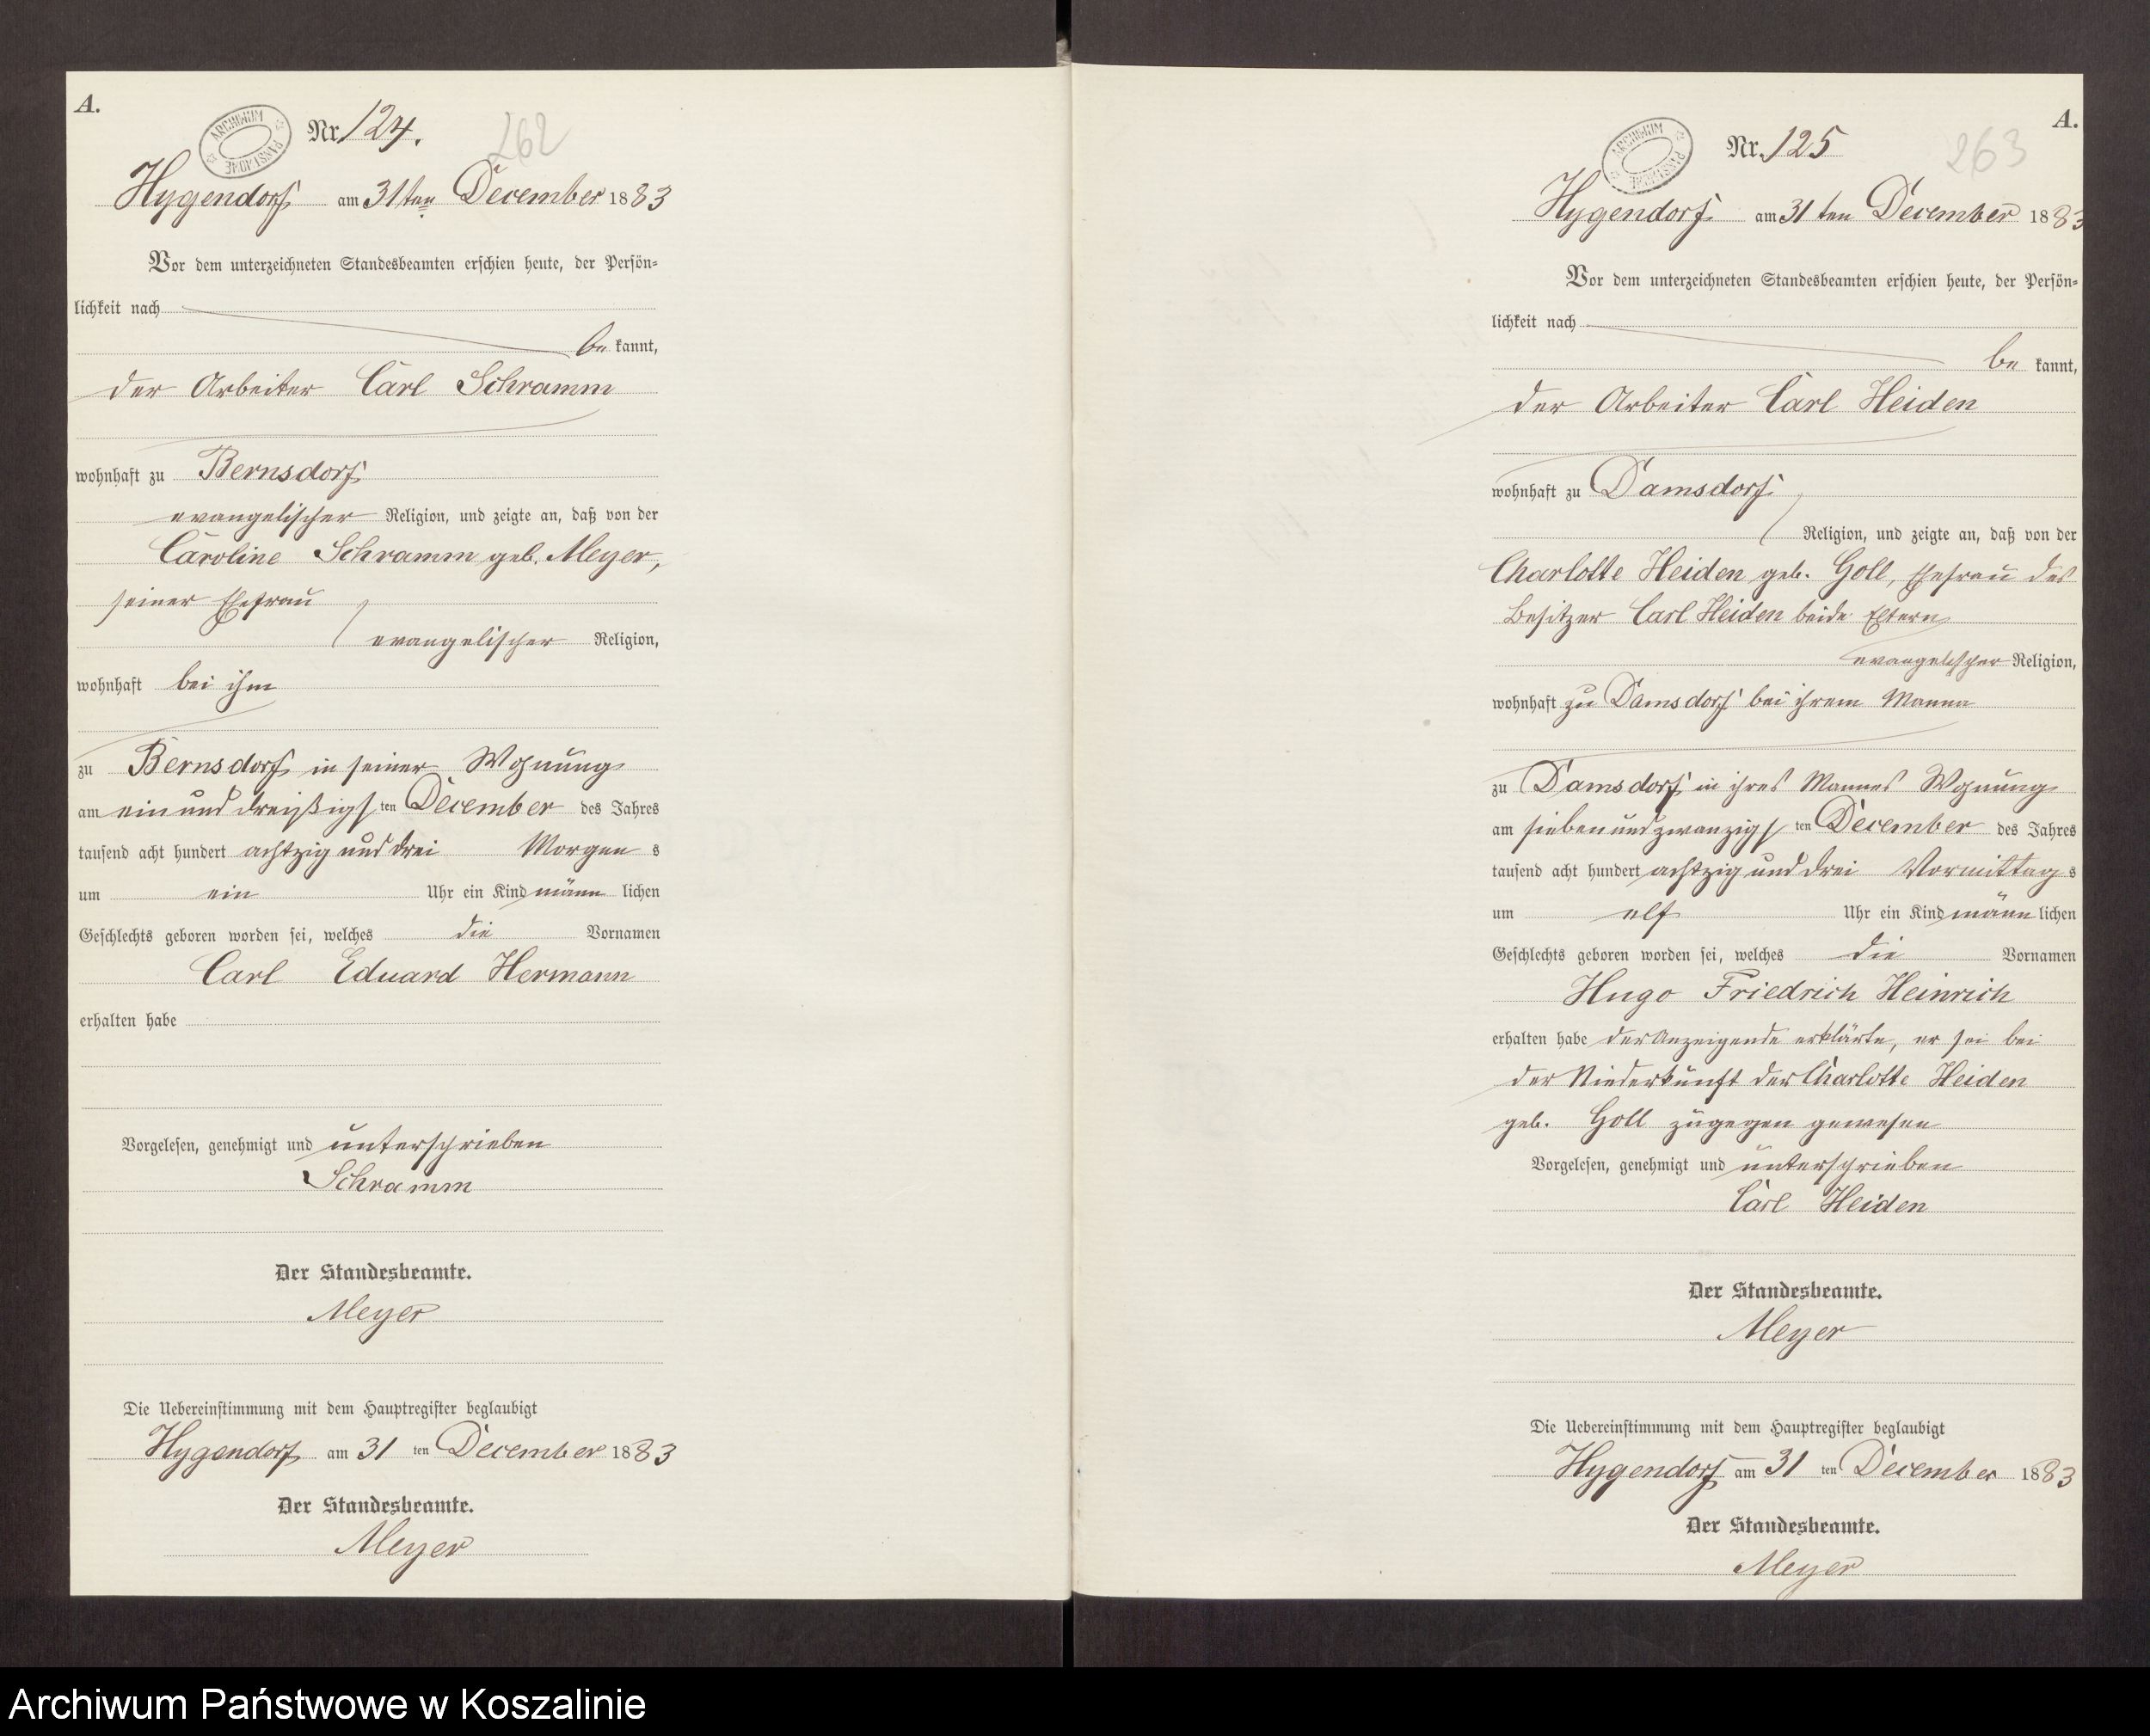 A.
ARCHIWUM PAŃSTWOWE
Nr. 124.
262
Hygendorf am 31ten December 1883
Vor dem unterzeichneten Standesbeamten erschien heute, der Persön-
lichkeit nach
be kannt,
der Arbeiter Carl Schramm
wohnhaft zu Bernsdorf
evangelischer Religion, und zeigte an, daß von der
Caroline Schramm geb. Meyer,
seiner Ehefrau
evangelischer Religion,
wohnhaft bei ihm
zu Bernsdorf in seiner Wohnung
am ein und dreißigs ten December des Jahres
tausend acht hundert achtzig und drei Morgen s
um ein Uhr ein Kind männ lichen
Geschlechts geboren worden sei, welches die Vornamen
Carl Eduard Hermann
erhalten habe
Vorgelesen, genehmigt und unterschrieben
Schramm
Der Standesbeamte.
Meyer
Die Uebereinstimmung mit dem Hauptregister beglaubigt
Hygendorf am 31 ten December 1883
Der Standesbeamte.
Meyer
A.
ARCHIWUM PAŃSTWOWE
Nr. 125
263
Hygendorf am 31 ten December 1883
Vor dem unterzeichneten Standesbeamten erschien heute, der Persön-
lichkeit nach
be kannt,
der Arbeiter Carl Heiden
wohnhaft zu Damsdorf
Religion, und zeigte an, daß von der
Charlotte Heiden geb. Goll, Ehefrau des
Besitzer Carl Heiden beide Eltern
evangelischer Religion,
wohnhaft zu Damsdorf bei ihrem Manne
zu Damsdorf in ihres Mannes Wohnung
am sieben und zwanzigs ten December des Jahres
tausend acht hundert achtzig und drei Vormittag s
um elf Uhr ein Kind männ lichen
Geschlechts geboren worden sei, welches die Vornamen
Hugo Friedrich Heinrich
erhalten habe der Anzeigende erklärte, er sei bei
der Niederkunft der Charlotte Heiden
geb. Goll zugegen gewesen
Vorgelesen, genehmigt und unterschrieben
Carl Heiden
Der Standesbeamte.
Meyer
Die Uebereinstimmung mit dem Hauptregister beglaubigt
Hygendorf am 31 ten December 1883
Der Standesbeamte.
Meyer
Archiwum Państwowe w Koszalinie